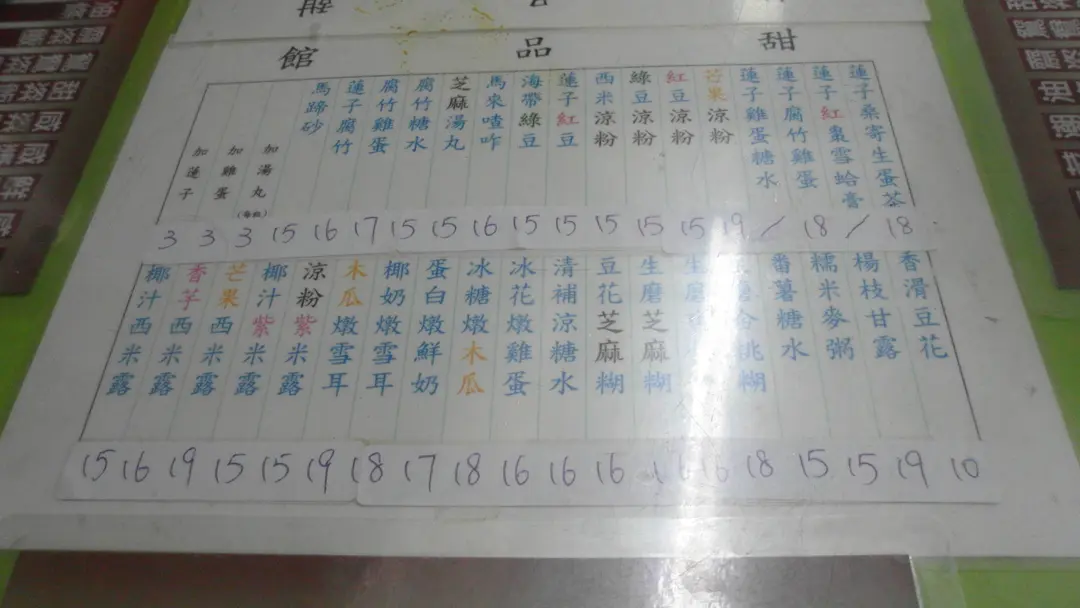 甜品館
蓮子桑寄生蛋茶
蓮子紅棗雪蛤膏
蓮子腐竹雞蛋
蓮子雞蛋糖水
芒果涼粉
紅豆涼粉
綠豆涼粉
西米涼粉
蓮子紅豆
海帶綠豆
馬來喳咋
芝麻湯丸
腐竹糖水
腐竹雞蛋
蓮子腐竹
馬蹄砂
加湯丸(每粒)
加雞蛋
加蓮子
3 3 3 15 16 17 15 15 16 15 15 15 15 15 19 / 18 / 18
香滑豆花
楊枝甘露
糯米麥粥
番薯糖水
桃糊
生
生磨芝麻糊
豆花芝麻糊
清補涼糖水
冰花燉雞蛋
冰糖燉木瓜
蛋白燉鮮奶
椰奶燉雪耳
木瓜燉雪耳
涼粉紫米露
椰汁紫米露
芒果西米露
香芋西米露
椰汁西米露
15 16 19 15 15 19 18 17 18 16 16 16 16 16 18 15 15 19 10